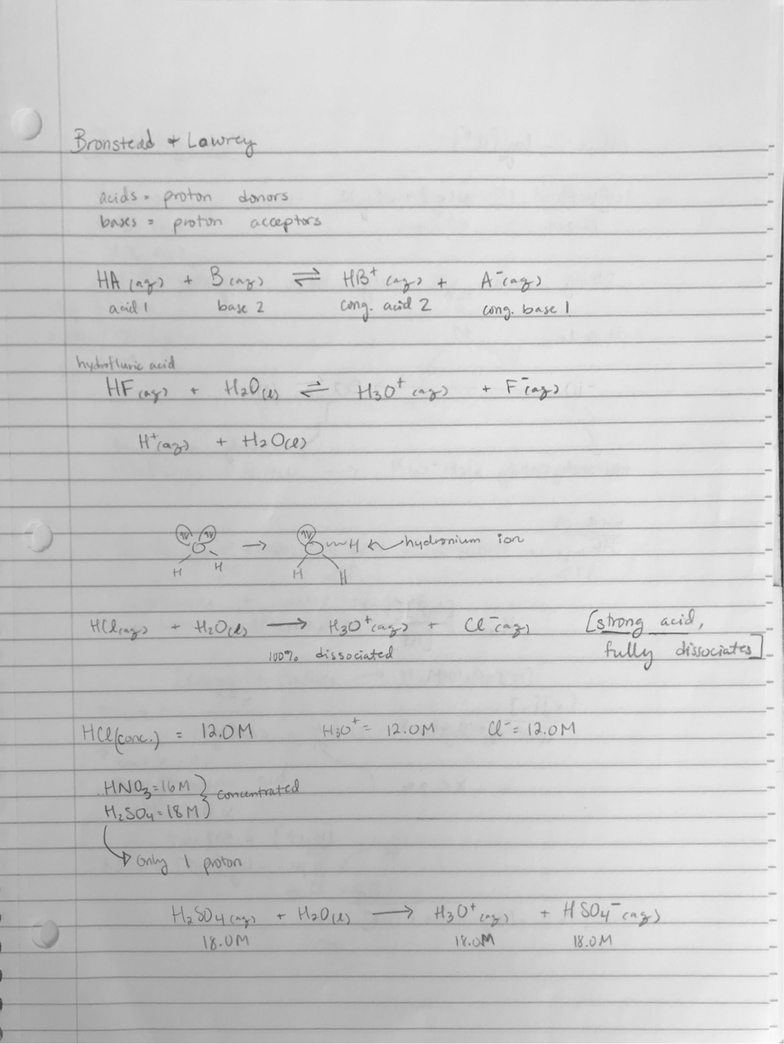 Bronstead + Lawrey
acids = proton donors
bases = proton acceptors
HA (aq) + B (aq) ⇌ HB⁺ (aq) + A⁻ (aq)
acid 1 base 2 cong. acid 2 cong. base 1
hydrofluric acid
HF (aq) + H₂O(l) ⇌ H₃O⁺ (aq) + F⁻ (aq)
H⁺(aq) + H₂O(l)
O → O H ← hydronium ion
H H H H
HCl(aq) + H₂O(l) → H₃O⁺(aq) + Cl⁻(aq) [strong acid,
100% dissociated fully dissociates]
HCl(conc.) = 12.0M H₃O⁺ = 12.0M Cl⁻ = 12.0M
HNO₃ = 16M } concentrated
H₂SO₄ = 18M
→ only 1 proton
H₂SO₄ (aq) + H₂O(l) → H₃O⁺ (aq) + HSO₄⁻ (aq)
18.0M 18.0M 18.0M